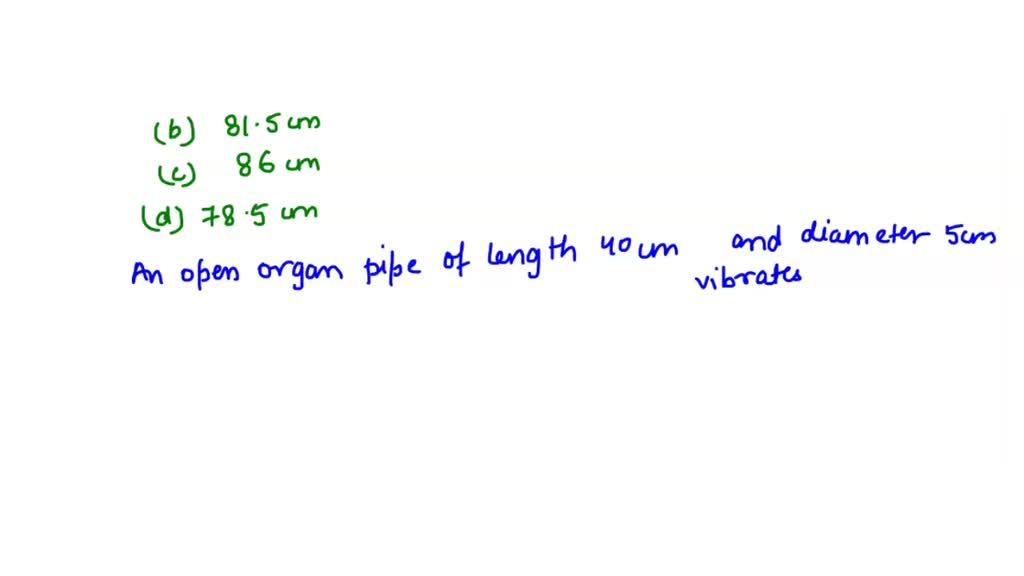 (b) 81.5 cm
(c) 86 cm
(d) 78.5 cm
An open organ pipe of length 40 cm and diameter 5cm
vibrates